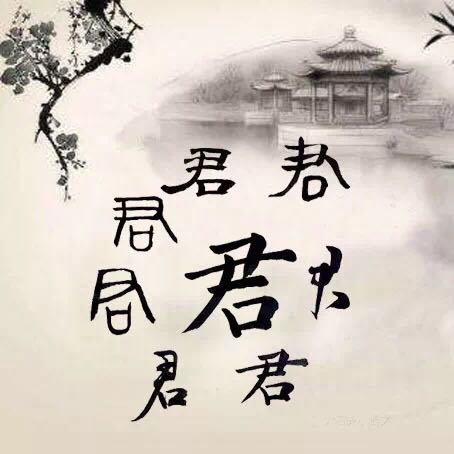 君 君
君
君
君
君
君 君